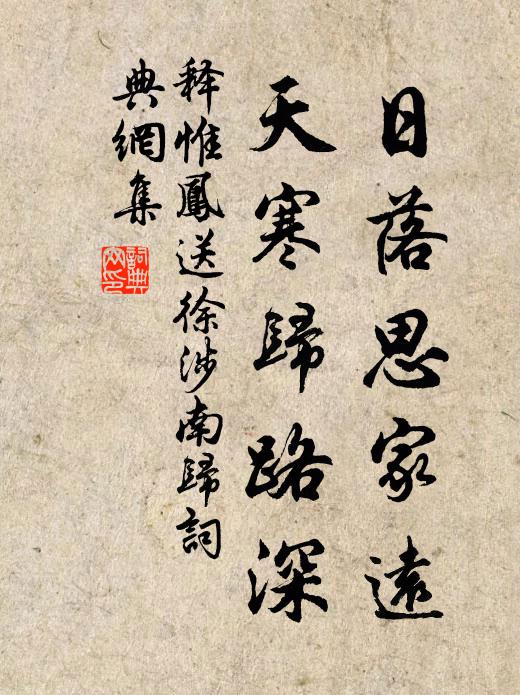 日落思家遠
天寒歸路深
释惟鳳送徐涉南歸詞
典網集
詞典
网印